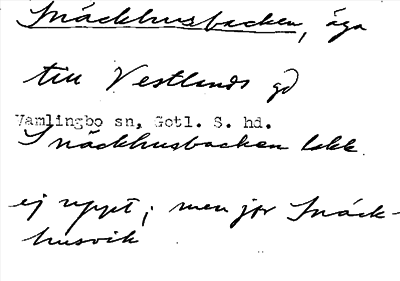 Snäckhusbacken, äga
till Vestlands gd
Vamlingbo sn, Gotl. S. hd.
Snäckhusbacken lokk.
ej uppt; men jfr Snäck-
husvik